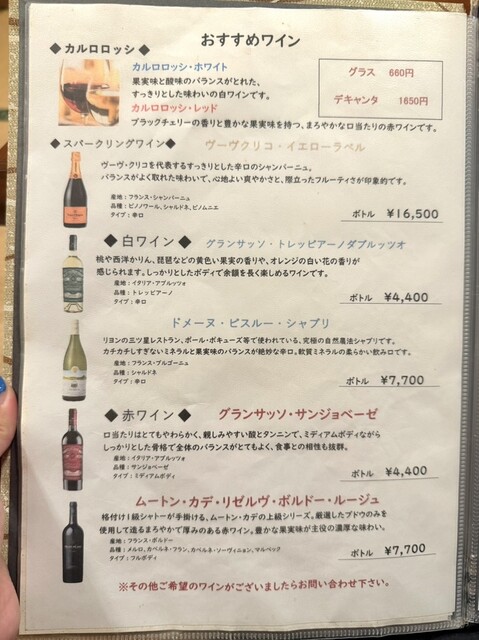 おすすめワイン
◆ カルロロッシ ◆
カルロロッシ・ホワイト
果実味と酸味のバランスがとれた、
すっきりとした味わいの白ワインです。
カルロロッシ・レッド
ブラックチェリーの香りと豊かな果実味を持つ、まろやかな口当たりの赤ワインです。
グラス 660円
デキャンタ 1650円
◆ スパークリングワイン◆ ヴーヴクリコ・イエローラベル
ヴーヴ・クリコを代表するすっきりとした辛口のシャンパーニュ。
バランスがよく取れた味わいで、心地よい爽やかさと、際立ったフルーティさが印象的です。
産地：フランス・シャンパーニュ
品種：ピノノワール、シャルドネ、ピノムニエ
タイプ：辛口
ボトル ￥16,500
◆ 白ワイン ◆ グランサッソ・トレッビアーノダブルッツオ
桃や西洋かりん、琵琶などの黄色い果実の香りや、オレンジの白い花の香りが
感じられます。しっかりとしたボディで余韻を長く楽しめるワインです。
産地：イタリア・アブルッツォ
品種：トレッビアーノ
タイプ：辛口
ボトル ￥4,400
ドメーヌ・ビスルー・シャブリ
リヨンの三ツ星レストラン、ポール・ボキューズ等で使われている、究極の自然農法シャブリです。
カチカチしすぎないミネラルと果実味のバランスが絶妙な辛口。軟質ミネラルの柔らかい飲み口です。
産地：フランス・ブルゴーニュ
品種：シャルドネ
タイプ：辛口
ボトル ￥7,700
◆ 赤ワイン ◆ グランサッソ・サンジョベーゼ
口当たりはとてもやわらかく、親しみやすい酸とタンニンで、ミディアムボディながら
しっかりとした骨格で全体のバランスがとてもよく、食事との相性も抜群。
産地：イタリア・アブルッツォ
品種：サンジョベーゼ
タイプ：ミディアムボディ
ボトル ￥4,400
ムートン・カデ・リゼルヴ・ボルドー・ルージュ
格付け1級シャトーが手掛ける、ムートン・カデの上級シリーズ。厳選したブドウのみを
使用して造るまろやかで厚みのある赤ワイン。豊かな果実味が主役の濃厚な味わい。
産地：フランス・ボルドー
品種：メルロ、カベルネ・フラン、カベルネ・ソーヴィニョン、マルベック
タイプ：フルボディ
ボトル ￥7,700
※その他ご希望のワインがございましたらお問い合わせ下さい。